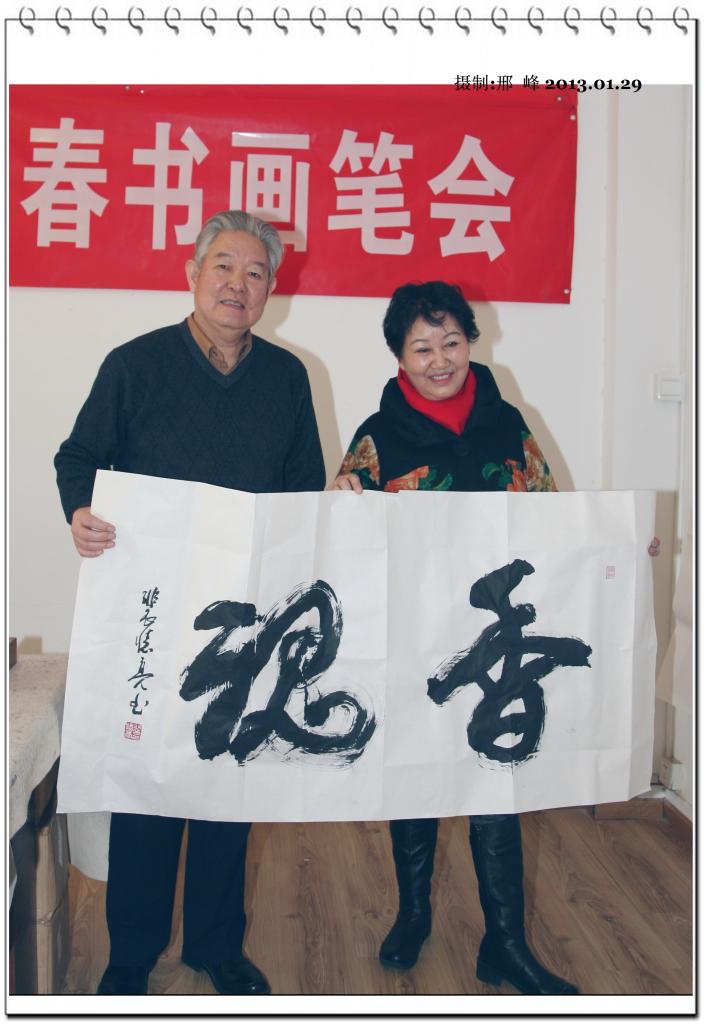 摄制:邢 峰 2013.01.29
春书画笔会
香魂